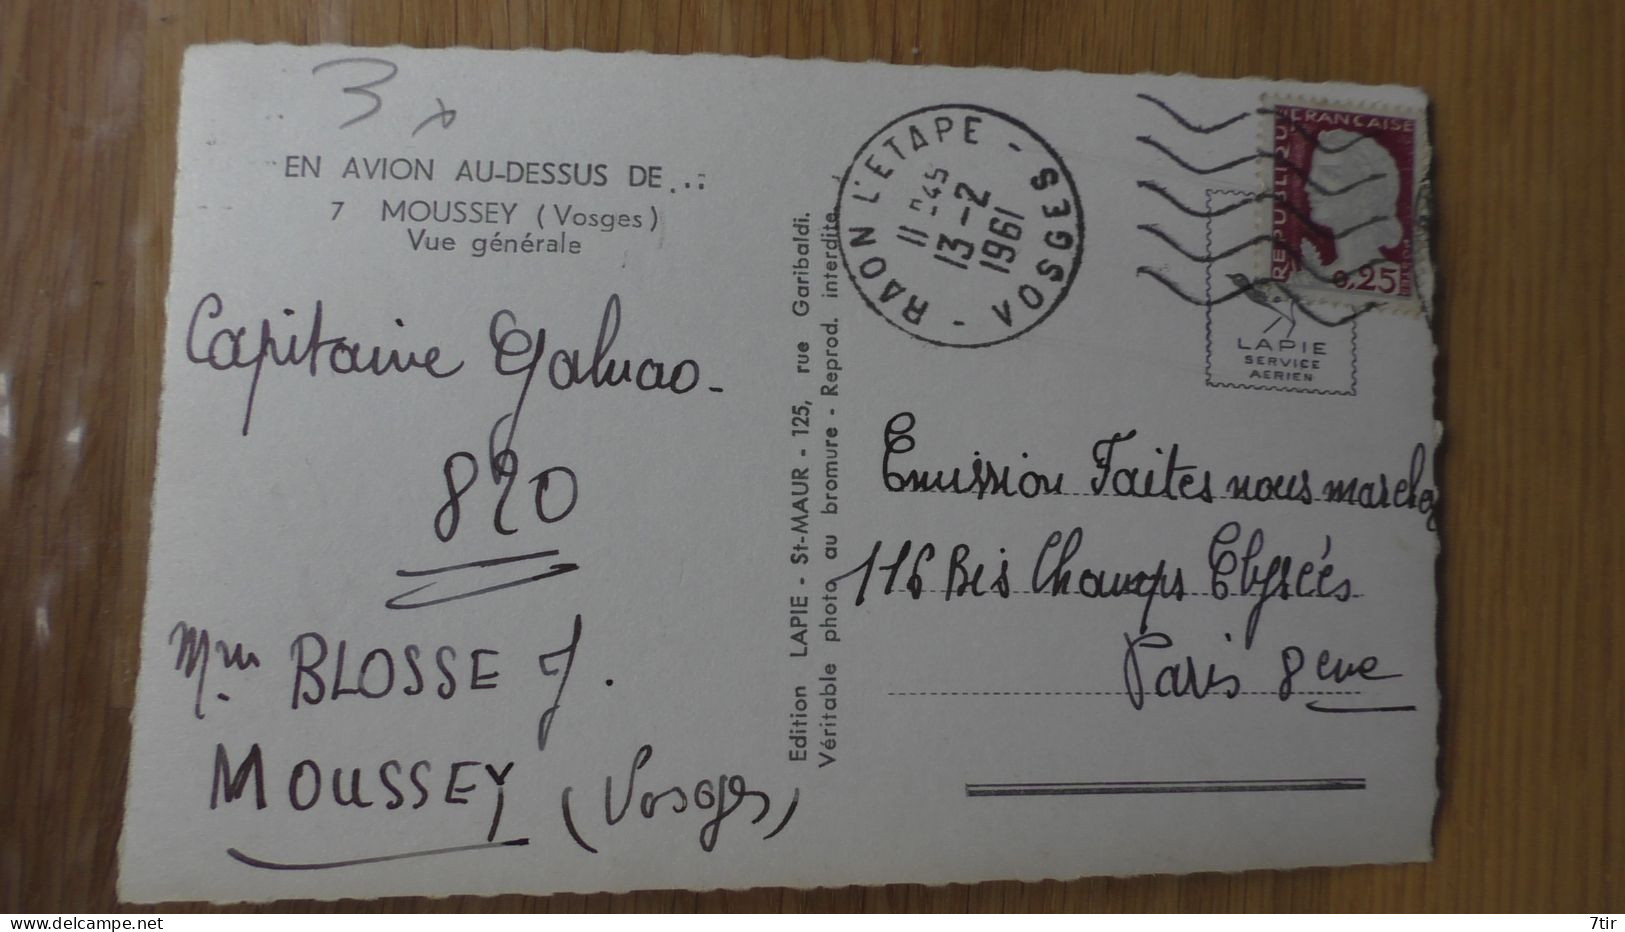 3 x
EN AVION AU-DESSUS DE...
7 MOUSSEY (Vosges)
Vue générale
Capitaine Galvao-
820
Mme BLOSSE J.
MOUSSEY (Vosges)
Edition LAPIE - St-MAUR - 125, rue Garibaldi.
Véritable photo au bromure - Reprod. interdite.
RAON L'ETAPE - VOSGES -
11 H45
13-2
1961
REPUBLIQUE FRANCAISE
0,25
LAPIE
SERVICE
AERIEN
Emission Faites nous marcher
116 Bis Champs Elysées
Paris 8eme
delcampe.net
7tir